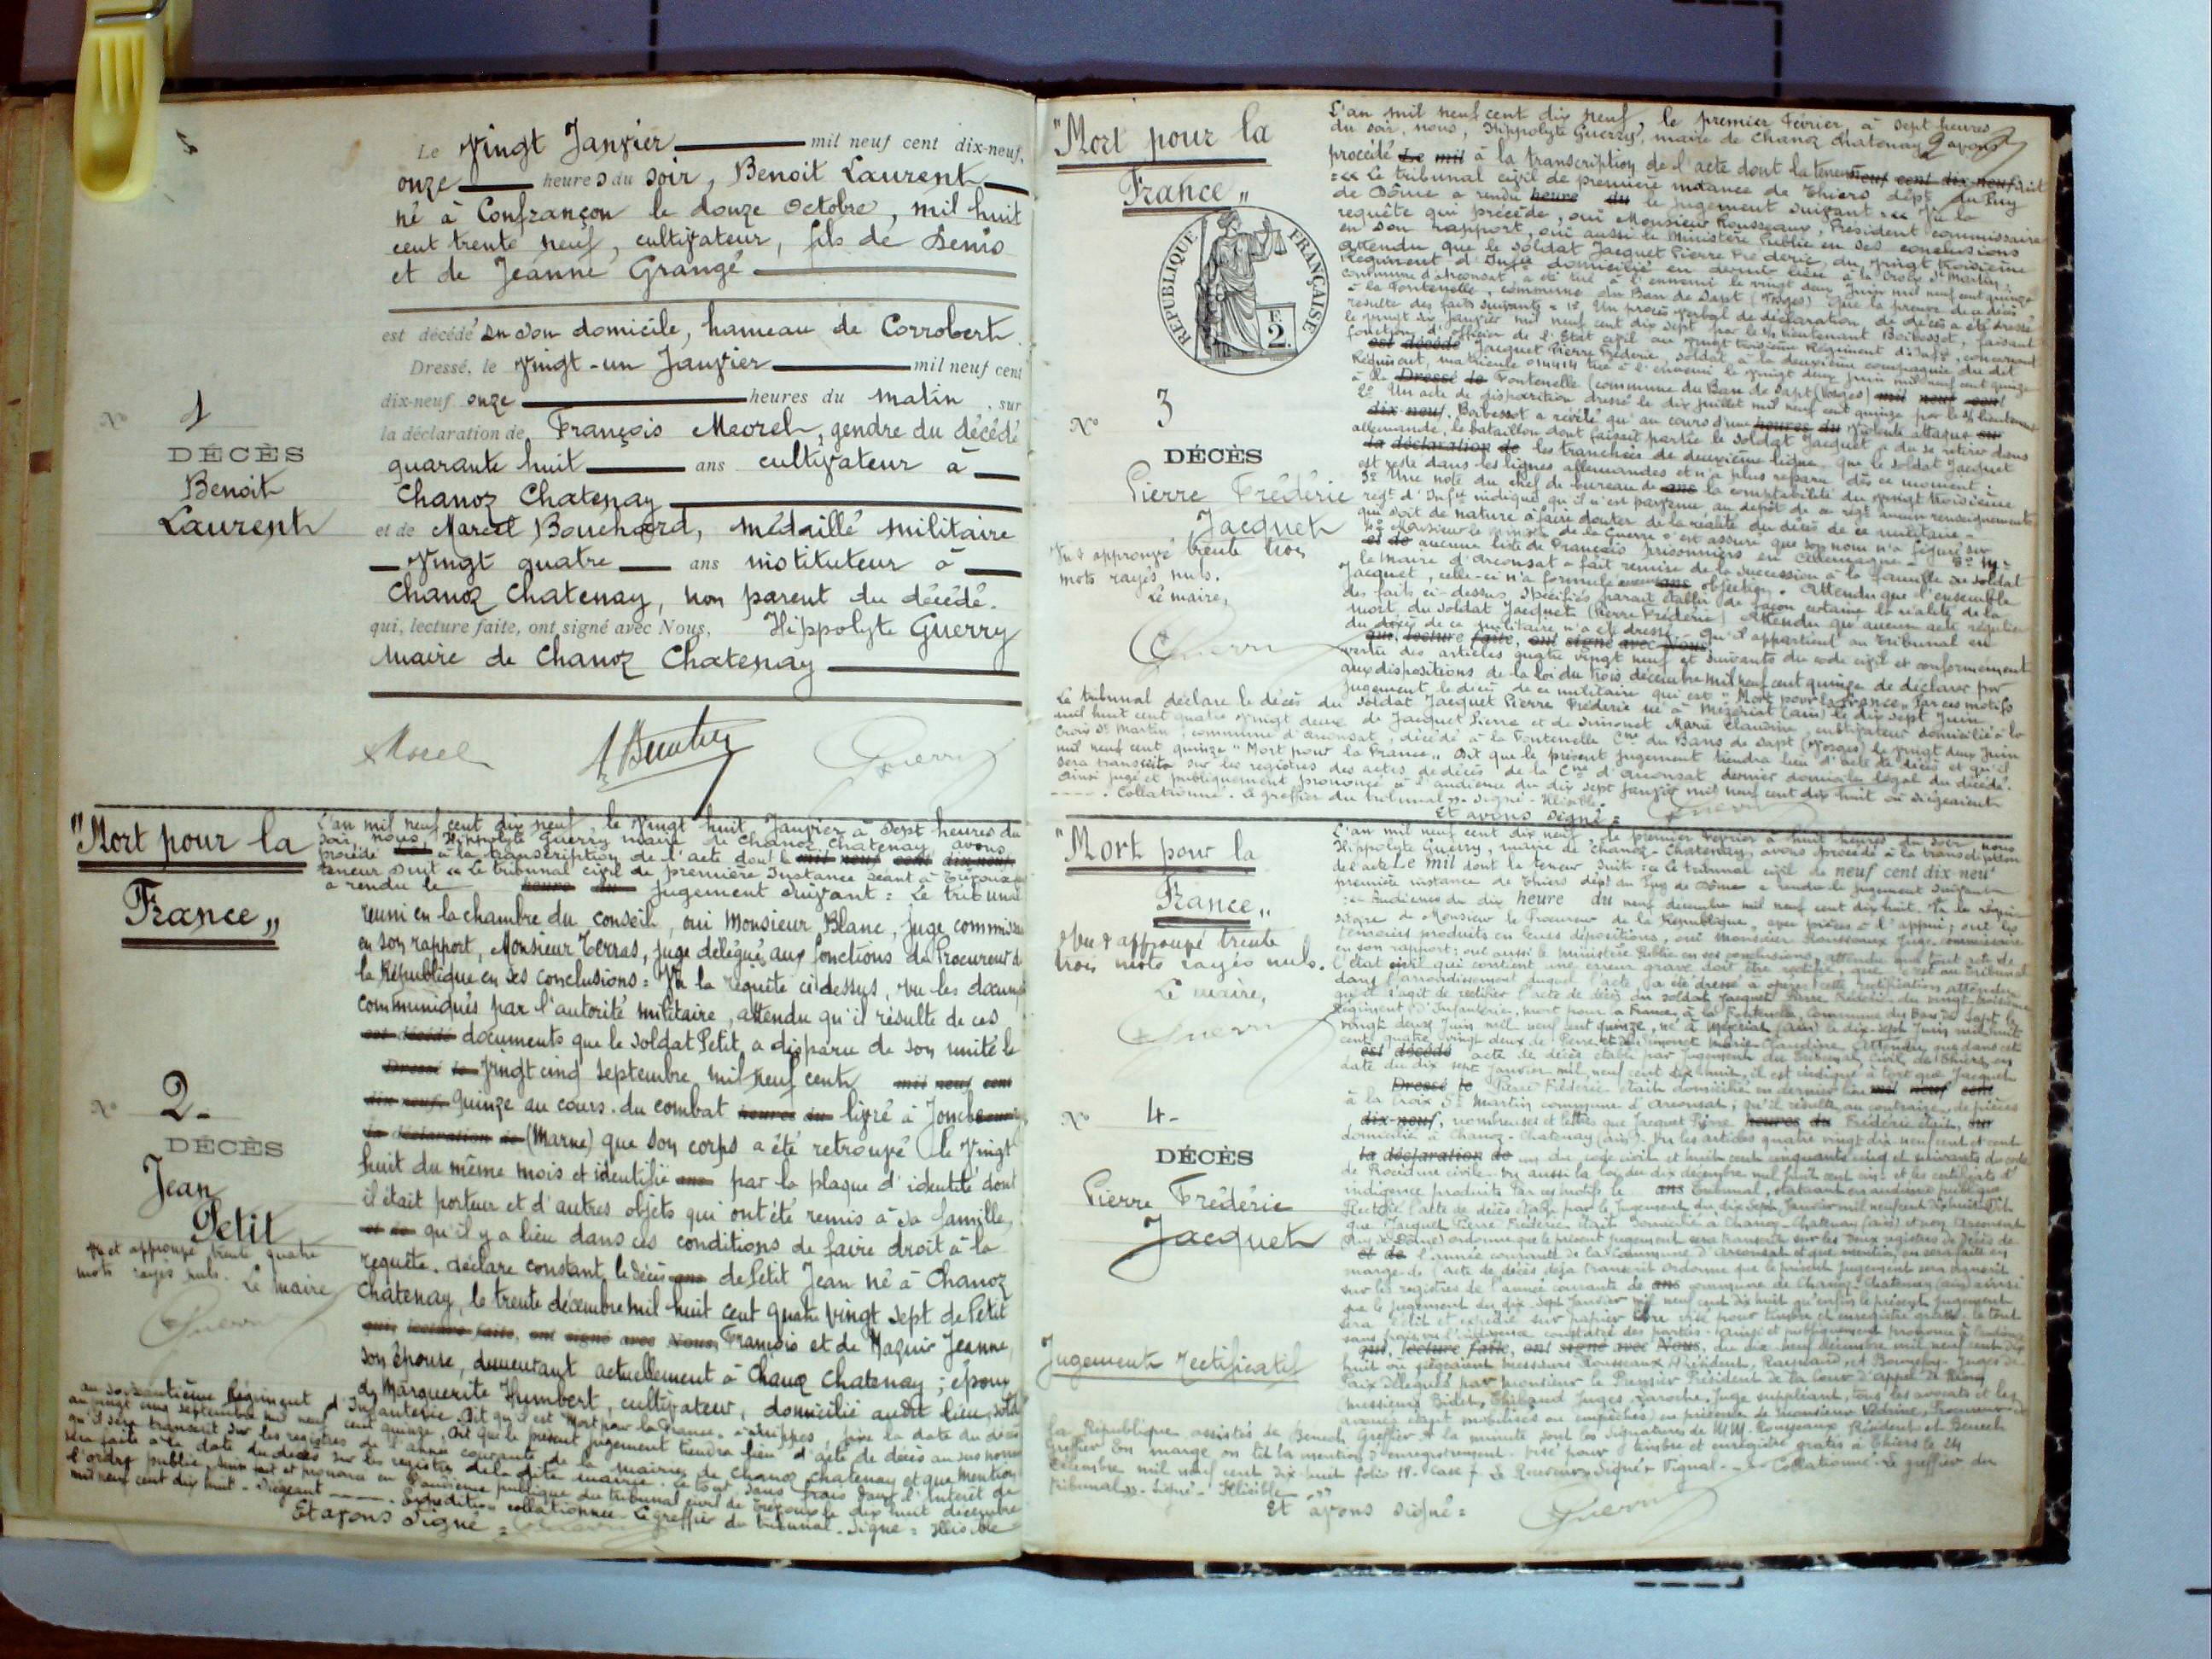 Le Vingt Janvier mil neuf cent dix-neuf,
onze heures du soir, Benoit Laurent
né à Confrançon le douze Octobre, mil huit
cent trente neuf, cultivateur, fils de Denis
et de Jeanne Grangé
est décédé en son domicile, hameau de Corrobert
Dressé, le Vingt-un Janvier mil neuf cent
dix-neuf onze heures du matin, sur
la déclaration de François Morel, gendre du décédé
quarante huit ans cultivateur à
Chanoz Chatenay
et de Marcel Bouchard, médaillé militaire
Vingt quatre ans instituteur à
Chanoz Chatenay, non parent du décédé.
qui, lecture faite, ont signé avec Nous, Hippolyte Guerry
Maire de Chanoz Chatenay
No 1
DÉCÈS
Benoit
Laurent
Morel
Guerry
"Mort pour la
France"
No 2-
DÉCÈS
Jean
Petit
Vu et approuvé trente quatre
mots rayés nuls. Le Maire
Guerry
L'an mil neuf cent dix neuf, le Vingt huit Janvier à sept heures du
soir, nous, Hippolyte Guerry maire de Chanoz Chatenay, avons
procédé à la transcription de l'acte dont la mil neuf cent dix-neuf,
teneur suit "Le tribunal civil de première Instance séant à Trévoux
a rendu le heure du jugement suivant : Le tribunal
réuni en la chambre du conseil, oui Monsieur Blanc, juge
en son rapport, Monsieur Terras, juge délégué aux fonctions de Procureur de
la République en ses conclusions : Vu la requête ci dessus, vu les
communiqués par l'autorité militaire, attendu qu'il résulte de ces
est décédé documents que le soldat Petit a disparu de son unité le
Dressé le Vingt cinq septembre mil neuf cent mil neuf cent
dix-neuf, quinze au cours du combat heures du livré à
la déclaration de (Marne) que son corps a été retrouvé le Vingt
huit du même mois et identifié ans par la plaque d'identité dont
il était porteur et d'autres objets qui ont été remis à sa famille,
et de qu'il y a lieu dans ces conditions de faire droit à la
requête. déclare constant le décès ans de Petit Jean né à Chanoz
Chatenay, le trente décembre mil huit cent quatre vingt sept de Petit
qui, lecture faite, ont signé avec Nous, François et de Jeanne,
son épouse, demeurant actuellement à Chanoz Chatenay ; époux
de Marguerite Humbert, cultivateur, domicilié audit lieu, soldat
au soixantième Régiment d'Infanterie. Dit qu'il est Mort pour la France. fixe la date du décès
au vingt cinq septembre mil neuf cent quinze. Dit que le présent jugement tiendra lieu d'acte de décès au sus nommé
qu'il sera transcrit sur les registres de l'année courante de la mairie de Chanoz Chatenay et que mention
sera faite à la date du décès sur les registres de la dite mairie. Le tout sans frais
l'ordre public. Ainsi fait et prononcé en l'audience publique du tribunal civil de Trévoux le dix huit décembre
mil neuf cent dix huit. Siégeant . Expédition collationnée. Le greffier du tribunal. Signé : Illisible
Et avons signé =
"Mort pour la
France"
REPUBLIQUE FRANÇAISE
2F.
No 3
DÉCÈS
Pierre Frédéric
Jacquet
Vu & approuvé trente trois
mots rayés nuls.
Le maire,
Guerry
L'an mil neuf cent dix neuf, le premier Février, à sept heures
du soir, nous, Hippolyte Guerry, maire de Chanoz Chatenay avons
procédé Le mil à la transcription de l'acte dont la teneur neuf cent dix-neuf suit
:"Le tribunal civil de première instance de Thiers dépt du Puy
de Dôme a rendu heure du le jugement suivant "Vu la
requête qui précède, oui Monsieur Rousseaux, Président commissaire
en son rapport, oui aussi le Ministère Public en ses conclusions
attendu que le soldat Jacquet Pierre Frédéric, du vingt troisième
Régiment d'Infie domicilié en dernier lieu à la Croix St Martin,
commune d'Arconsat, a été tué à l'ennemi le vingt deux Juin mil neuf cent quinze
à la Fontenelle, commune du Ban de Sapt (Vosges) Que la preuve de ce décès
résulte des faits suivants = 1o Un procès verbal de déclaration de décès a été dressé
le vingt six Janvier mil neuf cent dix sept par le s/lieutenant Boibessot, faisant
fonctions d'officier de l'Etat civil au vingt troisième Régiment d'Infie, concernant
est décédé Jacquet Pierre Frédéric, soldat à la deuxième compagnie du dit
Régiment, matricule tué à l'ennemi le vingt deux Juin mil neuf cent quinze
à la Dressé le Fontenelle (commune du Ban de Sapt (Vosges) mil neuf cent
2o Un acte de disparition dressé le dix Juillet mil neuf cent quinze par le s/lieutenant
dix-neuf, Boibessot a révélé qu'au cours d'une heures du violente attaque sur
allemande, le bataillon dont faisait partie le soldat Jacquet a du se retirer dans
la déclaration de les tranchées de deuxième ligne, que le soldat Jacquet
est resté dans les lignes allemandes et n'a plus reparu dès ce moment :
3o Une note du chef de bureau de ans la comptabilité du vingt troisième
régt d'Infie indique qu'il n'est parvenu au dépôt de ce régt aucun renseignement
qui soit de nature à faire douter de la réalité du décès de ce militaire.
4o Monsieur le ministre de la Guerre s'est assuré que son nom n'a figuré sur
et de aucune liste de Français prisonniers en Allemagne. 5o Mr
le Maire d'Arconsat a fait remise de la succession à la famille du soldat
Jacquet, celle-ci n'a formulé aucune ans objection. Attendu que l'ensemble
des faits ci-dessus spécifiés paraît établir de façon certaine la réalité de la
mort du soldat Jacquet (Pierre Frédéric) Attendu qu'aucun acte régulier
du décès de ce militaire n'a été dressé, qu'il appartient au tribunal en
qui, lecture faite, ont signé avec Nous,
vertu des articles quatre vingt neuf et suivants du code civil et conformément
aux dispositions de la loi du trois décembre mil neuf cent quinze de déclarer par
jugement, le décès de ce militaire qui est "Mort pour la France". Par ces motifs
Le tribunal déclare le décès du soldat Jacquet Pierre Frédéric né à Mézériat (Ain) le dix sept Juin
mil huit cent quatre vingt deux de Jacquet Pierre et de Simonet Marie Claudine, cultivateur domicilié à la
Croix St Martin, commune d'Arconsat, décédé à la Fontenelle Cne du Bans de Sapt (Vosges) le vingt deux Juin
mil neuf cent quinze "Mort pour la France". Dit que le présent jugement tiendra lieu d'acte de décès et qu'il
sera transcrit sur les registres des actes de décès de la Cne d'Arconsat dernier domicile légal du décédé.
Ainsi jugé et publiquement prononcé à l'audience du dix sept Janvier mil neuf cent dix huit où siégeaient
. Collationné. Le greffier du tribunal". Signé - Illisible.
Et avons signé =
"Mort pour la
France"
Vu & approuvé trente
trois mots rayés nuls.
Le maire,
Guerry
No 4-
DÉCÈS
Pierre Frédéric
Jacquet
Jugement rectificatif
L'an mil neuf cent dix neuf, le premier Février à huit heures du soir, nous
Hippolyte Guerry, maire de Chanoz-Chatenay, avons procédé à la transcription
de l'acte Le mil dont la teneur suit : "Le tribunal civil de neuf cent dix-neuf
première instance de Thiers dépt du Puy de Dôme a rendu le jugement suivant
: Audience du dix heure du neuf décembre mil neuf cent dix huit. Vu la
de Monsieur le Procureur de la République, avec pièces à l'appui ; oui les
témoins produits en leurs dépositions, oui Monsieur Rousseaux Juge commissaire
en son rapport ; oui aussi le ministère Public en ses conclusions, attendu que tout acte de
l'état civil qui contient une erreur grave doit être rectifié, que c'est au tribunal
dans l'arrondissement duquel l'acte a été dressé à opérer cette rectification attendu
qu'il s'agit de rectifier l'acte de décès du soldat Jacquet Pierre Frédéric du vingt-troisième
Régiment d'Infanterie, mort pour la France, à la Fontenelle, commune du Ban de Sapt le
vingt deux Juin mil neuf cent quinze, né à Mézériat (Ain) le dix-sept Juin mil huit
cent quatre vingt deux de Pierre et de Simonet Marie-Claudine, attendu que dans cet
est décédé acte de décès établi par jugement du tribunal civil de Thiers en
date du dix sept Janvier mil neuf cent dix huit, il est indiqué à tort que Jacquet
Dressé le Pierre Frédéric était domicilié en dernier lieu mil neuf cent
à la Croix St Martin commune d'Arconsat ; qu'il résulte au contraire de pièces
dix-neuf, nombreuses et lettres que Jacquet Pierre heures du Frédéric était, sur
domicilié à Chanoz-Chatenay (Ain). Vu les articles quatre vingt dix-neuf cent et cent
la déclaration de un du code civil et huit cent cinquante cinq et suivants du code
de Procédure civile. Vu aussi la loi du dix décembre mil huit cent et les certificats d'
indigence produits Par ces motifs le ans tribunal, statuant en audience publique
Rectifie l'acte de décès établi par le jugement du dix sept Janvier mil neuf cent dix huit Dit
que Jacquet Pierre Frédéric était domicilié à Chanoz-Chatenay (Ain) et non Arconsat
(Puy de Dôme) ordonne que le présent jugement sera transcrit sur les deux registres de décès de
et de l'année courante de la Commune d'Arconsat et que mention en sera faite en
marge de l'acte de décès déjà transcrit ordonne que le présent jugement sera transcrit
sur les registres de l'année courante de ans commune de Chanoz-Chatenay (Ain) ainsi
que le jugement du dix-sept Janvier mil neuf cent dix huit qu'enfin le présent jugement
sera édité et expédié sur papier libre visé pour timbre et enregistré gratis le tout
sans frais vu l'indigence constatée des parties. Ainsi et publiquement prononcé à l'audience
qui, lecture faite, ont signé avec Nous, du dix neuf décembre mil neuf cent dix
huit où siégeaient Messieurs Rousseaux Président, Juges de
Paix délégués par Monsieur le Premier Président de la Cour d'appel de Riom
(Messieurs Bidet, Thibaud Juges, Laroche, Juge suppléant, tous les avocats et les
avoués étant mobilisés ou empêchés) en présence de Monsieur Vedrine, Procureur de
la République, assistés de Benech Greffier A la minute sont les signatures de MM. Rousseaux Président et Benech
Greffier En marge on lit la mention d'enregistrement. Visé pour timbre et enregistré gratis à Thiers le 24
Décembre mil neuf cent dix-huit folio 18. Case 7 Le Receveur Signé Vignal. Collationné. Le greffier du
tribunal". Signé. Illisible
Et avons signé =
Guerry